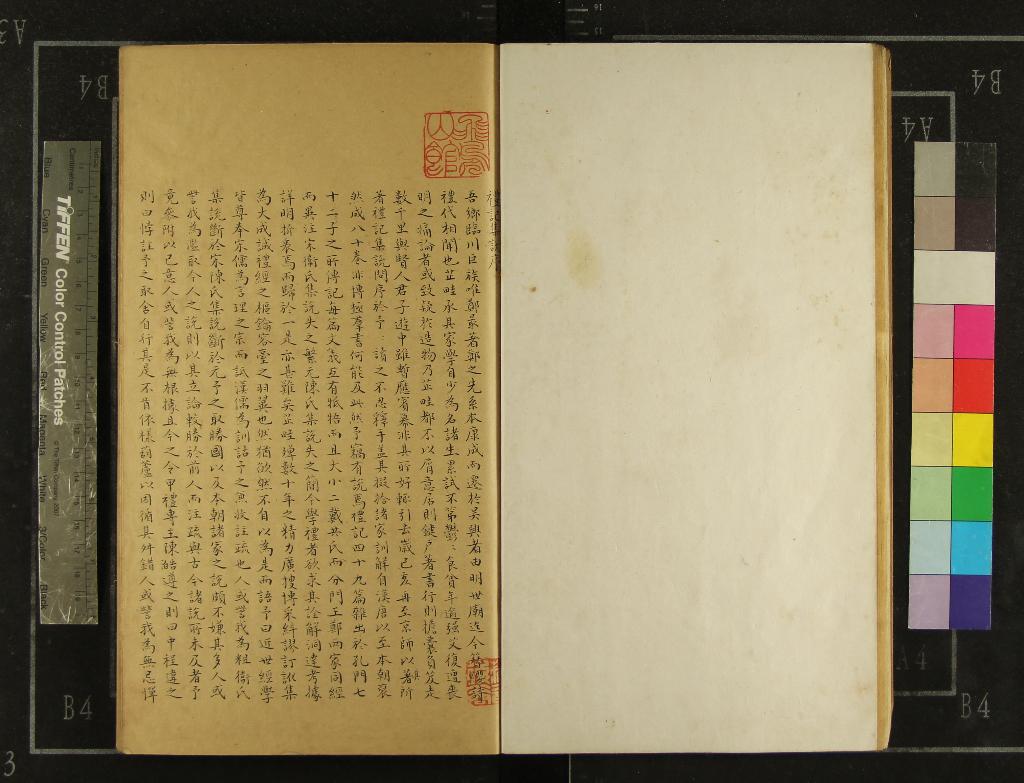 禮記集說序
吾鄉臨川巨族唯鄭最著鄭之先系本康成而遷於吳興者由明世廟迄今簪纓
禮代相聞也芷畦承其家學自少為名諸生累試不第鬱鬱食貧年逾强艾復遭喪
明之痛論者或致疑於造物乃芷畦都不以屑意居則鍵戶著書行則擔囊負笈走
數千里與賢人君子遊中雖暫應賓幕非其所好輒引去歲己亥再至京師以所
著禮記集說問序於予讀之不忍釋手蓋其掇拾諸家訓解自漢唐以至本朝裒
然成八十卷非博極羣書何能及此然予竊有說焉禮記四十九篇雜出於孔門七
十二子之所傳記每篇文義互有牴牾而且大小二戴共氏而分門王鄭兩家同經
而異注宋衞氏集說失之繁元陳氏集說失之簡今學禮者欲求其詮解洞達考據
詳明折衷焉而歸於一是亦甚難矣芷畦殫數十年之精力廣搜博采糾謬訂訛集
為大成誠禮經之樞鑰容臺之羽翼也然猶欿然不自以為是而語予曰近世經學
皆尊奉宋儒為言理之宗而詆漢儒為訓詁予之兼收註疏也人或訾我為粗衞氏
集說斷於宋陳氏集說斷於元予之取勝國以及本朝諸家之說頗不嫌其多人或
訾我為濫取今人之說則以其立論較勝於前人而注疏與古今諸說所未及者予
竟參附以己意人或訾我為無根據且今之令甲禮專主陳皓遵之則曰中程違之
則曰悖註予之取舍自行其是不肯依樣葫蘆以因循其舛錯人或訾我為無忌憚